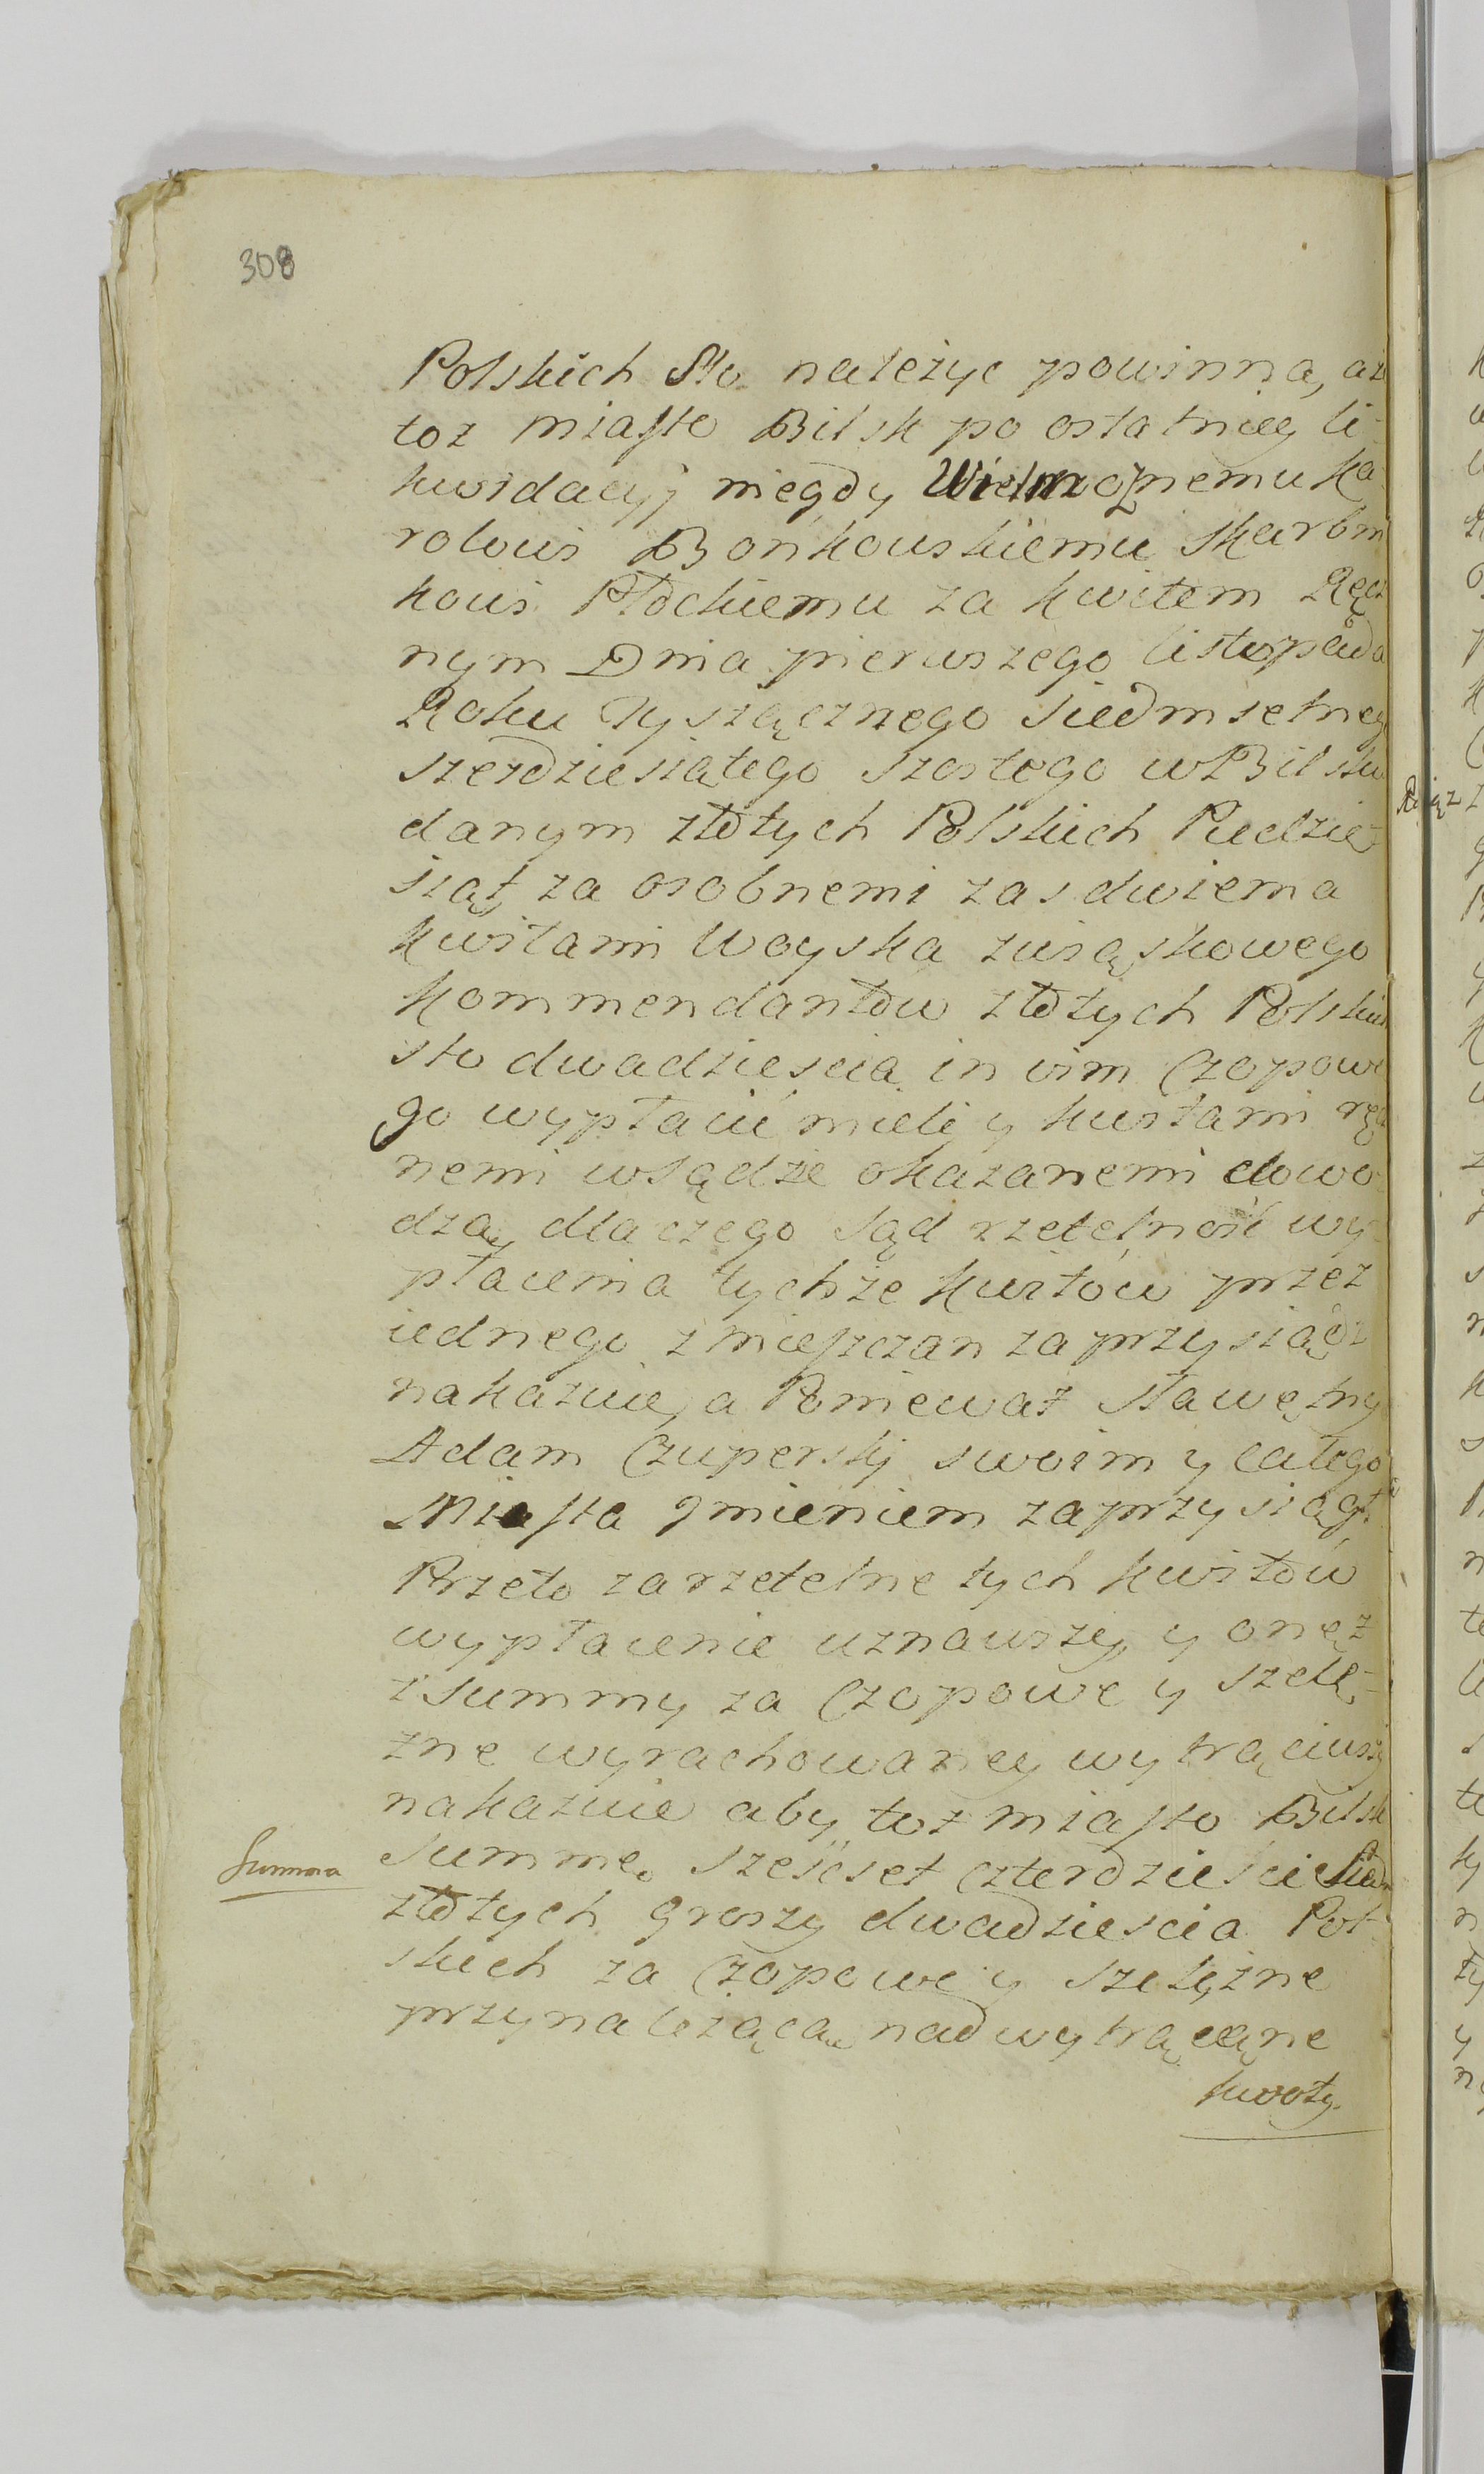 308
Polskich Sto należyc powinna, aż
toż miasto Bilsk po ostatniey li-
kwidacyj niegdy Wielmoznemu Ka-
rolowi Bonkowskiemu Skarbni
kowi Płockiemu za kwitem Ręcz
nym Dnia pierwszego listopada
Roku Tysiącznego Siedmsetneg
szezdziesiątego Szostego w Bilsku
danym złotych Polskich Piedzie
siąt za osobnemi zas dwiema
kwitami Woyska związkowego
kommendantow złotych Polskich
sto dwadziescia in vim Czopowe
go wypłacić mieli y kwitami ręcz
nemi w Sądzie okazanemi dowo
dzą, dla czego Sąd rzetelność wy-
płacenia tychże kwitow przez
iednego z mieszczan zaprzysiądz
nakazuie, a Ponieważ Sławetny
Adam Czuperskj swoim y całego
Miasta Jmieniem zaprzysiągł
Przeto za rzetelne tych kwitow
wypłacenie uznawszy, y oneż
z summy za Czopowe y szelę-
żne wyrachowaney wytrąciwszy
nakazuie aby toż miasto Bilsk
Summa
Summę sześcset czterdziescie Siedm
złotych groszy dwadziescia Pol-
skich za Czopowe y szelężne
przynależącą nad wytrącone
kwoty.